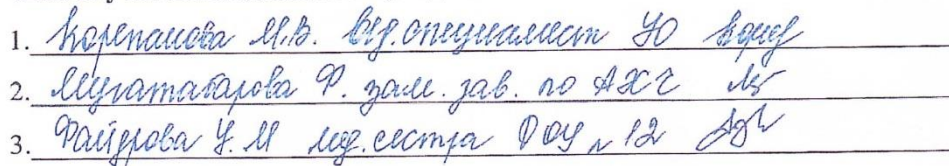 1. Корепанова М.В. вед. специалист УО
2. Мугатабарова Ф. зам. зав. по АХЧ
3. Файзрова У.М мед. сестра ДОУ №12